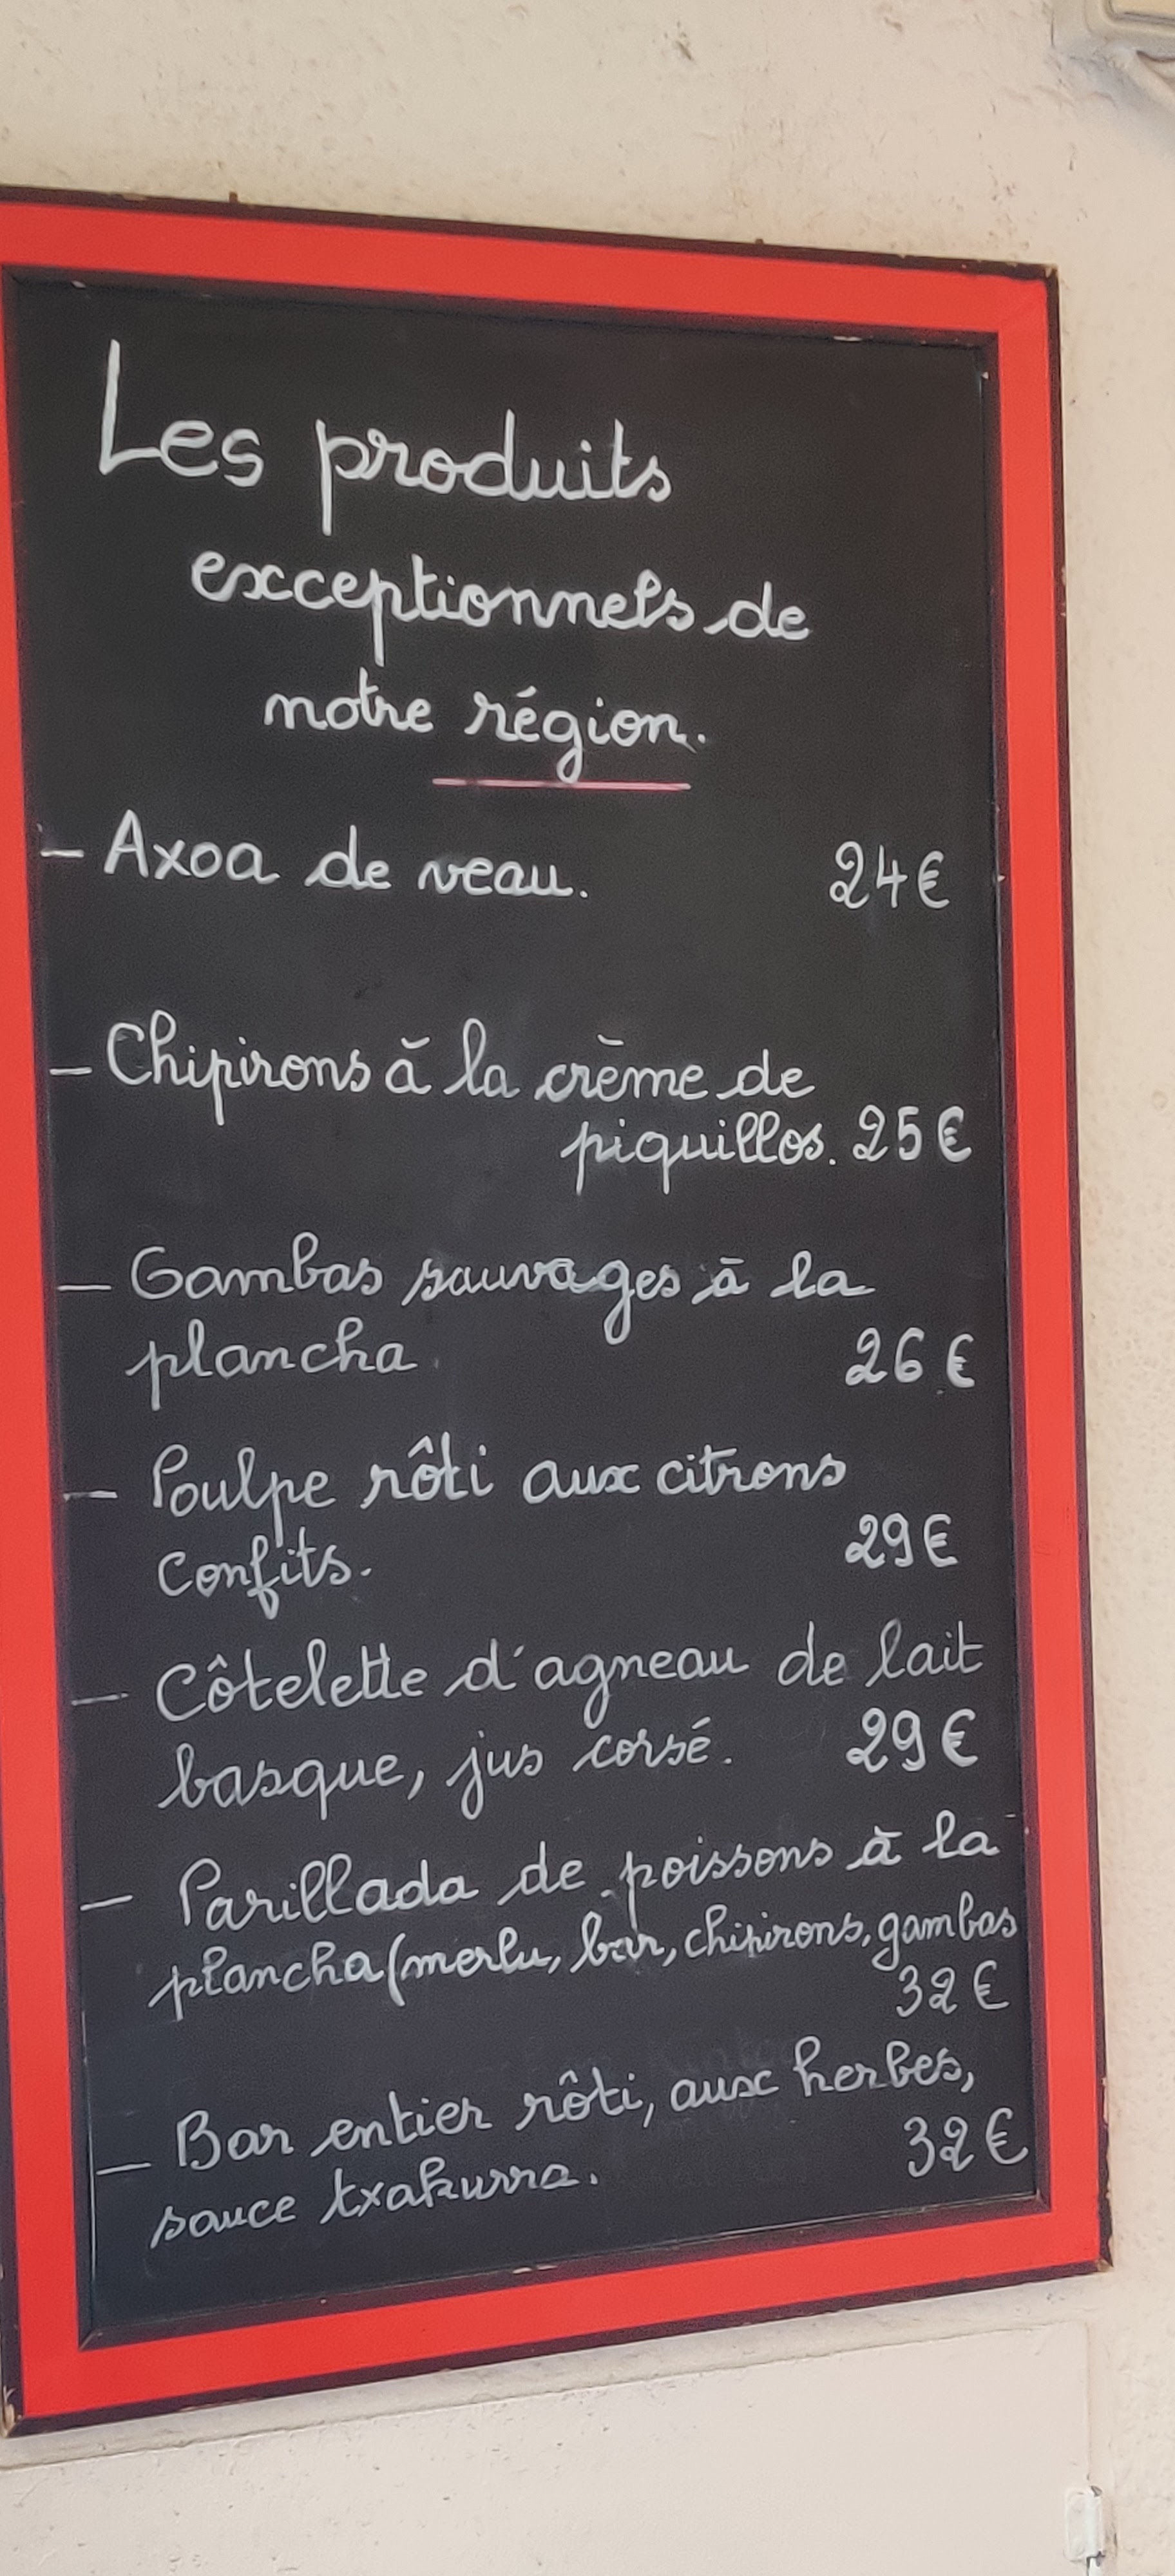 Les produits
exceptionnels de
notre région.
- Axoa de veau. 24€
- Chipirons à la crème de
piquillos. 25€
- Gambas sauvages à la
plancha. 26€
- Poulpe rôti aux citrons
confits. 29€
- Côtelette d'agneau de lait
basque, jus corsé. 29€
- Parillada de poissons à la
plancha (merlu, bar, chipirons, gambas
32€
- Bar entier rôti, aux herbes,
sauce txakurra. 32€